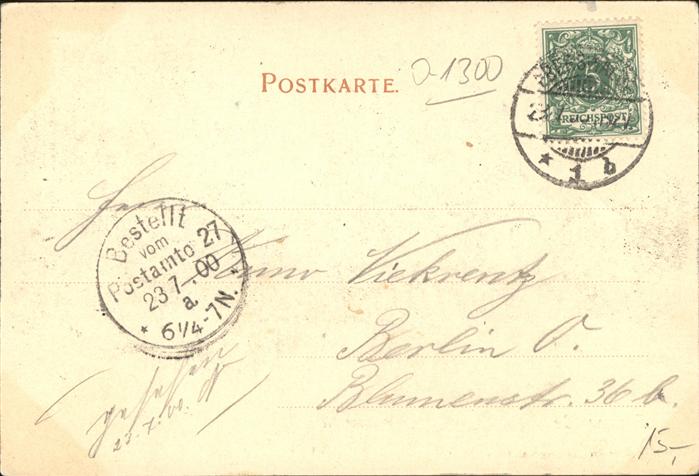 POSTKARTE.
O-1300
5
REICHSPOST
* 1 b
Herrn
Bestellt
vom
Postamte 27
23 7. 00
a.
* 6 1/4-7N. *
Viekrentz
Berlin O.
Blumenstr. 36 b.
gesehen
23.7.00.
15,-